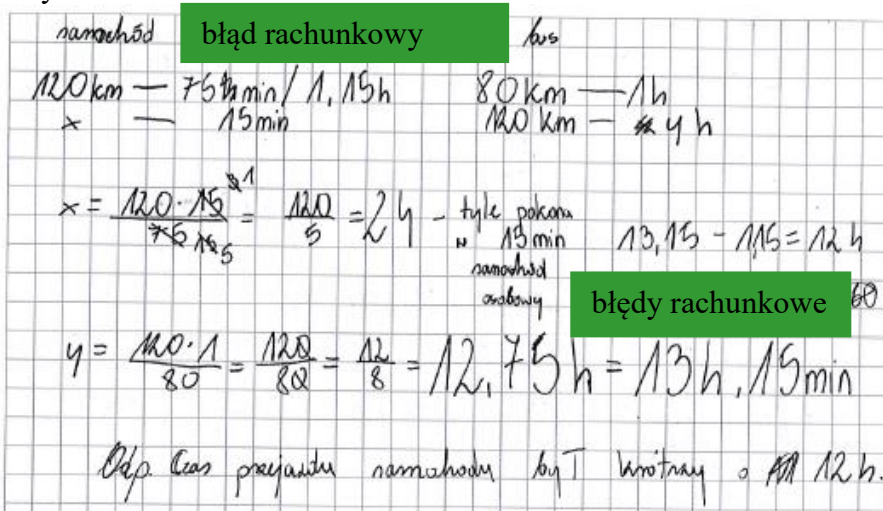 samochód błąd rachunkowy bus
120 km — 75 min / 1,15h 80 km — 1h
x — 15 min 120 km — y h
x = 120·15 / 75 15 5 = 120 / 5 = 24 - tyle pokona
w 15 min 13,15 - 1,15 = 12 h
samochód
osobowy błędy rachunkowe 60
y = 120·1 / 80 = 120 / 80 = 12 / 8 = 12,75 h = 13h, 15min
Odp. Czas przejazdu samochodu był krótszy o 12 h.